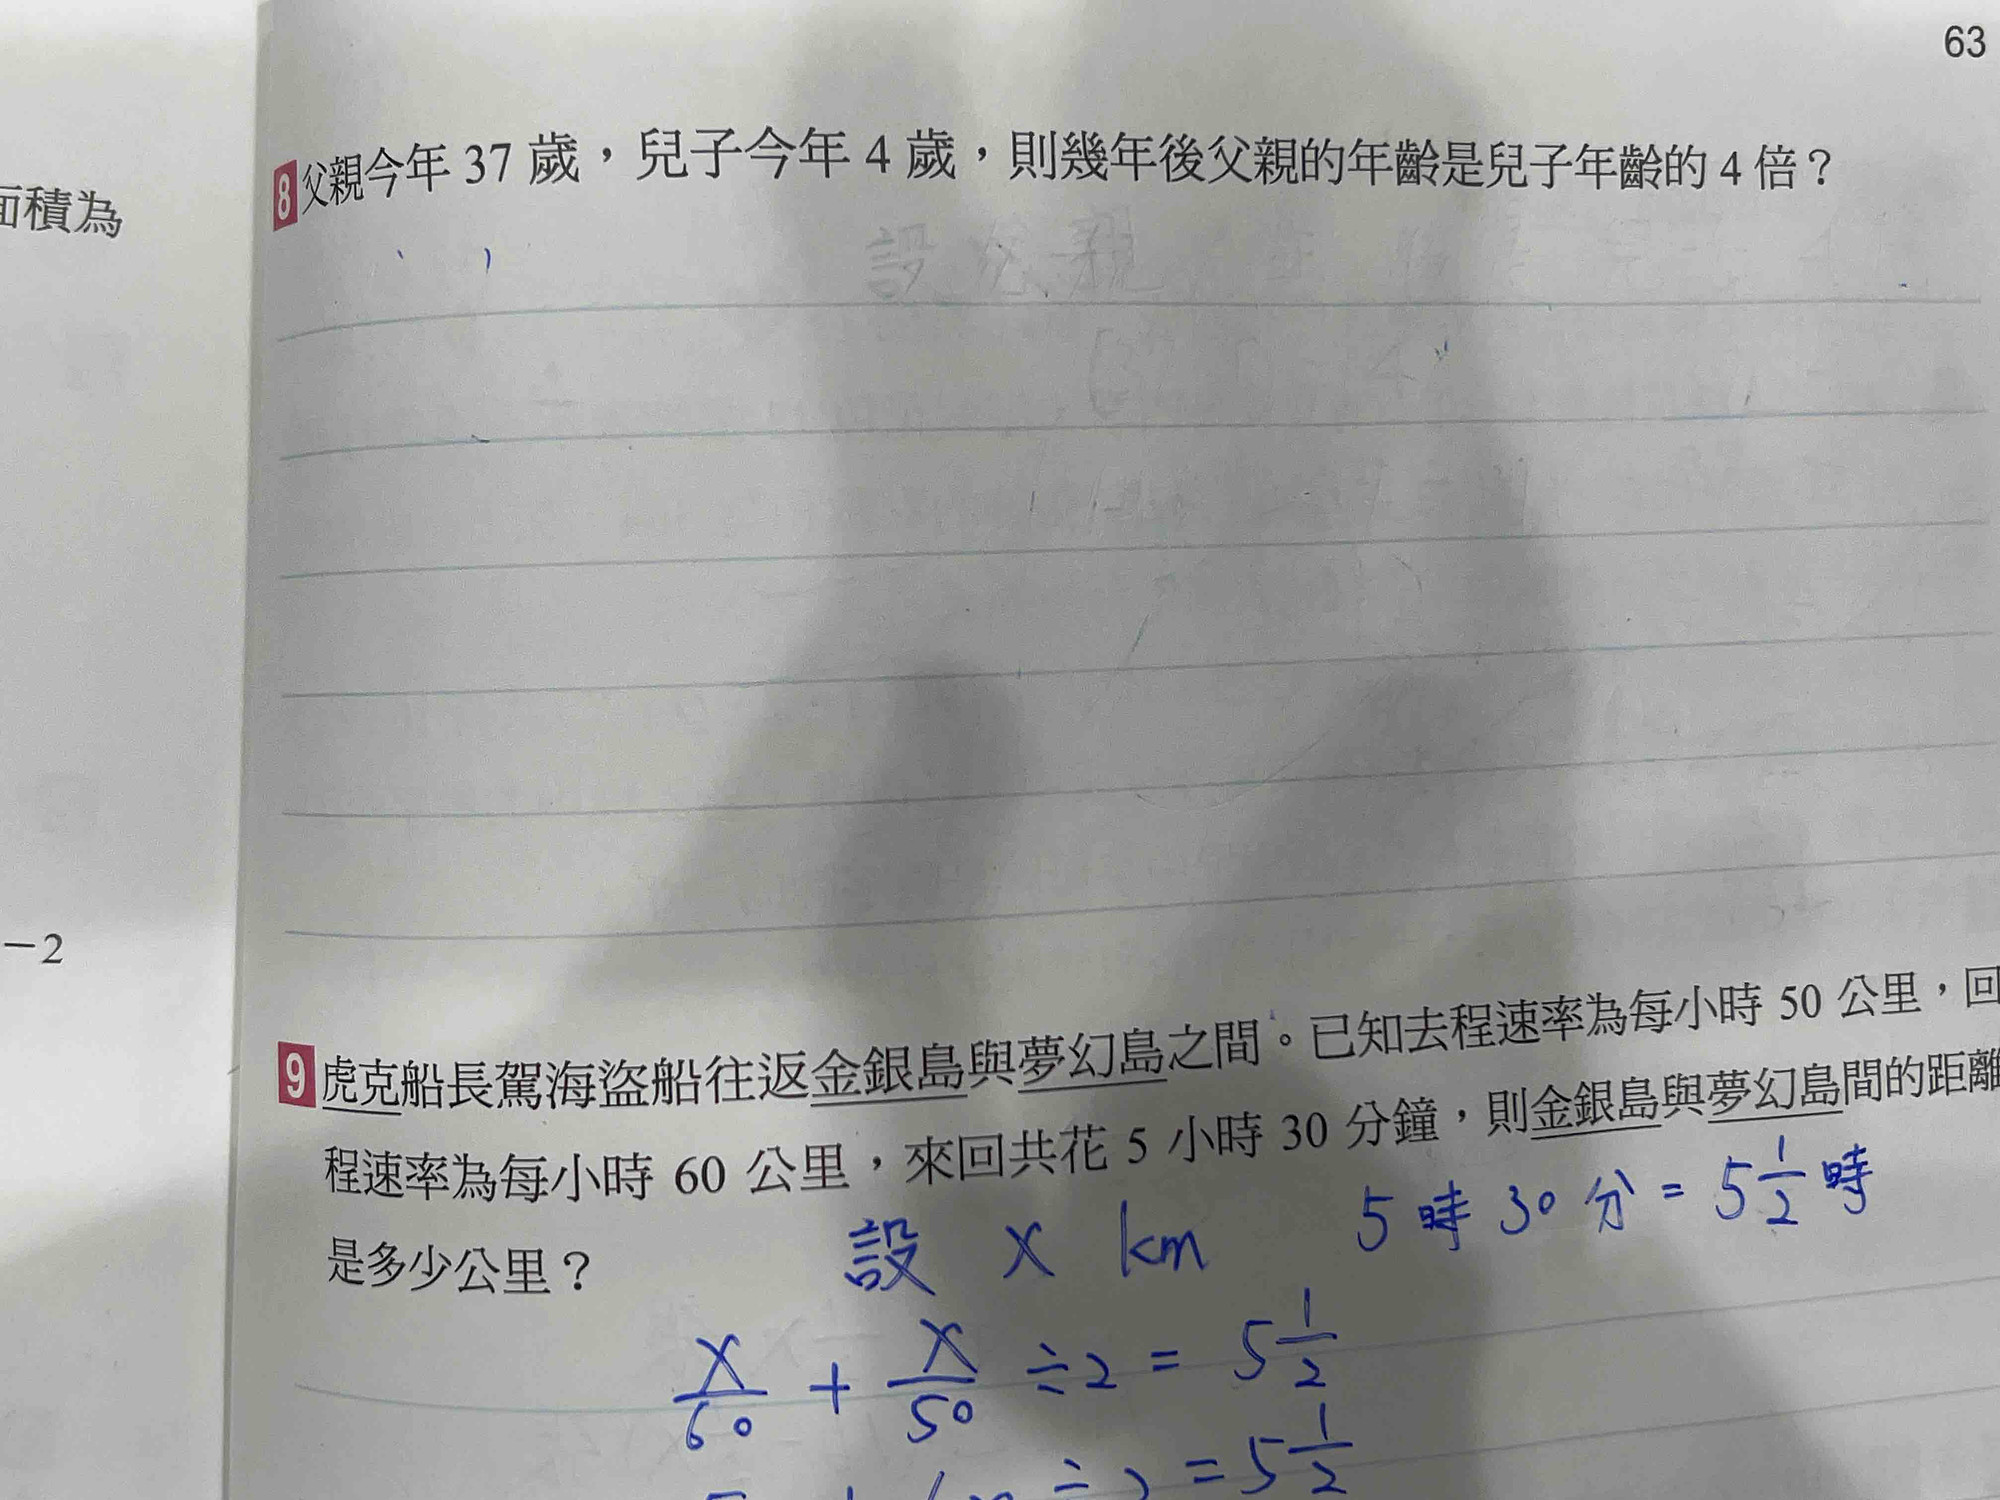 63
面積為
8 父親今年 37 歲，兒子今年 4 歲，則幾年後父親的年齡是兒子年齡的 4 倍？
設父親
−2
9 虎克船長駕海盜船往返金銀島與夢幻島之間。已知去程速率為每小時 50 公里，回
程速率為每小時 60 公里，來回共花 5 小時 30 分鐘，則金銀島與夢幻島間的距離
是多少公里？
設 x km 5 時 30 分 = 5 1/2 時
x/60 + x/50 ÷2 = 5 1/2
÷2 = 5 1/2